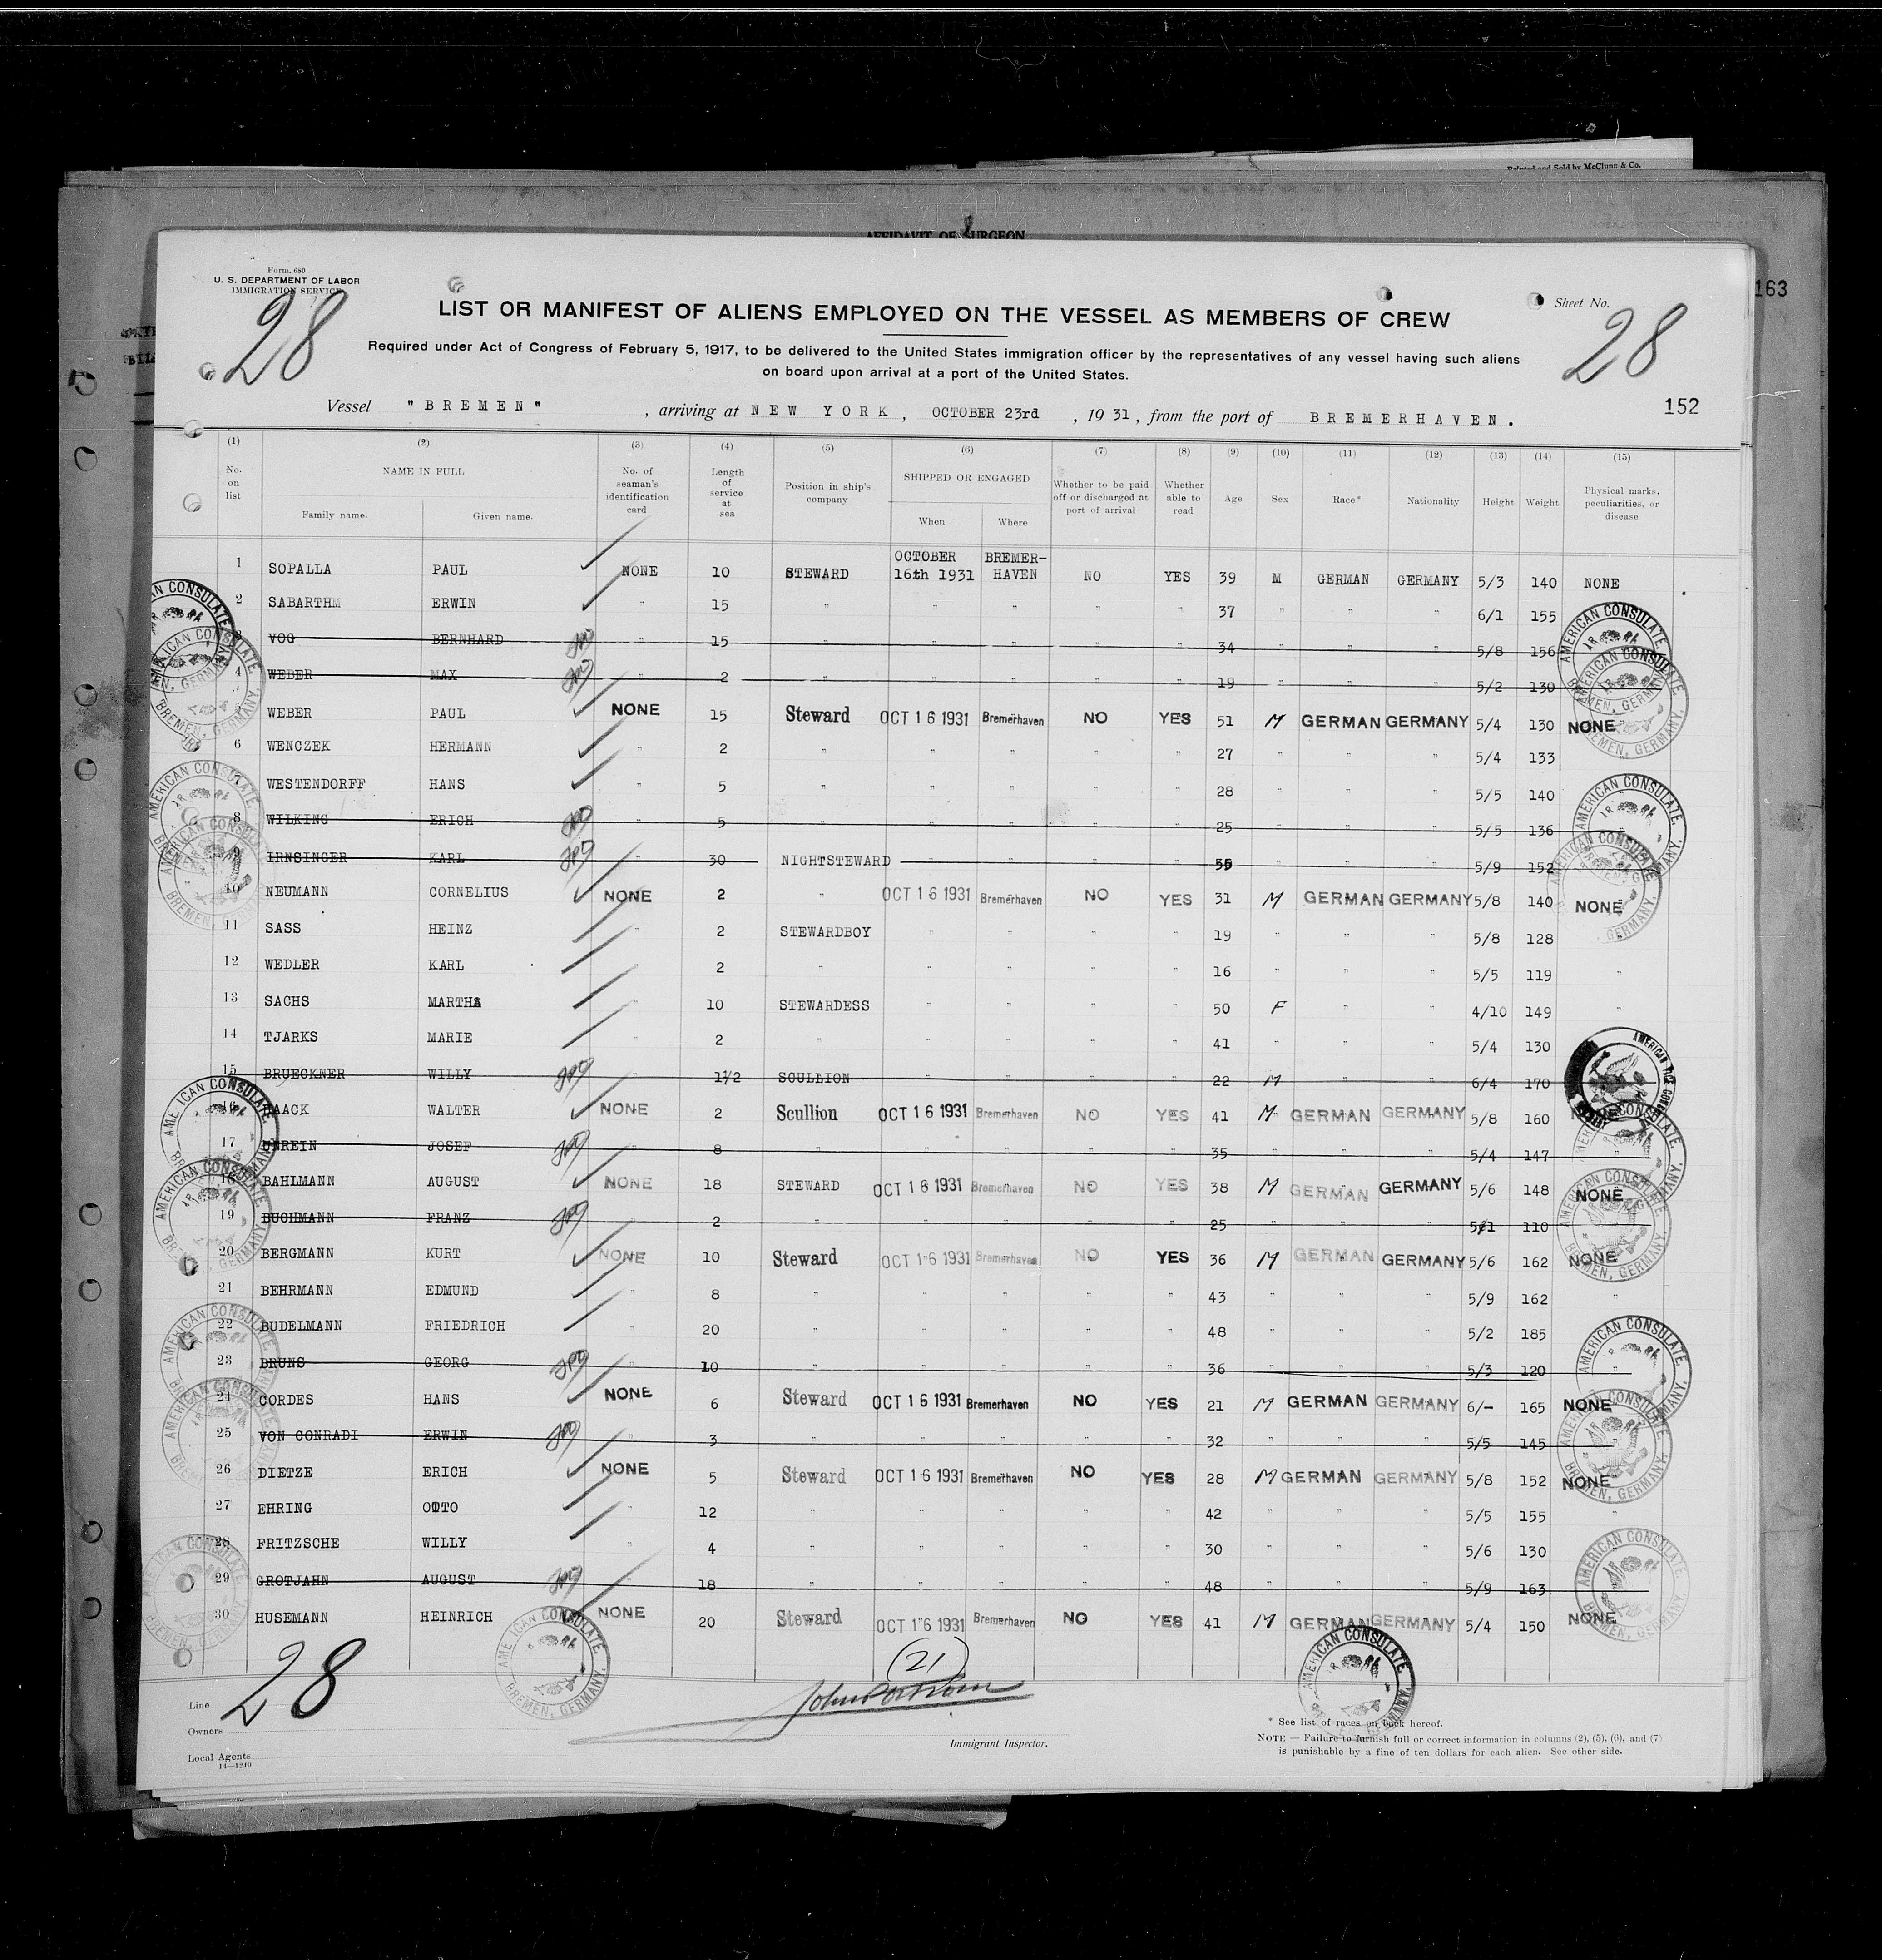 Printed and Sold by McClunn & Co.
AFFIDAVIT OF SURGEON
163
Form. 680
U. S. DEPARTMENT OF LABOR
IMMIGRATION SERVICE
28
LIST OR MANIFEST OF ALIENS EMPLOYED ON THE VESSEL AS MEMBERS OF CREW
Sheet No. 28
Required under Act of Congress of February 5, 1917, to be delivered to the United States immigration officer by the representatives of any vessel having such aliens
on board upon arrival at a port of the United States.
Vessel "BREMEN", arriving at NEW YORK, OCTOBER 23rd, 1931, from the port of BREMERHAVEN.
152
(1) (2) (3) (4) (5) (6) (7) (8) (9) (10) (11) (12) (13) (14) (15)
No. on list NAME IN FULL Family name. Given name. No. of seaman's identification card Length of service at sea Position in ship's company SHIPPED OR ENGAGED When Where Whether to be paid off or discharged at port of arrival Whether able to read Age Sex Race* Nationality Height Weight Physical marks, peculiarities, or disease
1 SOPALLA PAUL NONE 10 STEWARD OCTOBER 16th 1931 BREMER-HAVEN NO YES 39 M GERMAN GERMANY 5/3 140 NONE
2 SABARTHM ERWIN " 15 " " " " " 37 " " " 6/1 155
3 VOG BERNHARD " 15 " " " " " 34 " " " 5/8 156
4 WEBER MAX " 2 " " " " " 19 " " " 5/2 130
WEBER PAUL NONE 15 Steward OCT 16 1931 Bremerhaven NO YES 51 M GERMAN GERMANY 5/4 130 NONE
6 WENCZEK HERMANN " 2 " " " " " 27 " " " 5/4 133
7 WESTENDORFF HANS " 5 " " " " " 28 " " " 5/5 140
8 WILKING ERICH " 5 " " " " " 25 " " " 5/5 136
9 IRNSINGER KARL " 30 NIGHTSTEWARD " " " " 55 " " " 5/9 152
10 NEUMANN CORNELIUS NONE 2 " OCT 16 1931 Bremerhaven NO YES 31 M GERMAN GERMANY 5/8 140 NONE
11 SASS HEINZ " 2 STEWARDBOY " " " " 19 " " " 5/8 128
12 WEDLER KARL " 2 " " " " " 16 " " " 5/5 119 "
13 SACHS MARTHA " 10 STEWARDESS " " " " 50 F " " 4/10 149 "
14 TJARKS MARIE " 2 " " " " " 41 " " " 5/4 130
15 BRUECKNER WILLY " 1½ SCULLION " " " " 22 M " " 6/4 170
16 HAACK WALTER NONE 2 Scullion OCT 16 1931 Bremerhaven NO YES 41 M GERMAN GERMANY 5/8 160
17 UNREIN JOSEF " 8 " " " " " 35 " " " 5/4 147
18 BAHLMANN AUGUST NONE 18 STEWARD OCT 16 1931 Bremerhaven NO YES 38 M GERMAN GERMANY 5/6 148 NONE
19 BUCHMANN FRANZ " 2 " " " " " 25 " " " 5/1 110
20 BERGMANN KURT NONE 10 Steward OCT 16 1931 Bremerhaven NO YES 36 M GERMAN GERMANY 5/6 162 NONE
21 BEHRMANN EDMUND " 8 " " " " " 43 " " " 5/9 162 "
22 BUDELMANN FRIEDRICH " 20 " " " " " 48 " " " 5/2 185
23 BRUNS GEORG " 10 " " " " " 36 " " " 5/3 120
24 CORDES HANS NONE 6 Steward OCT 16 1931 Bremerhaven NO YES 21 M GERMAN GERMANY 6/- 165 NONE
25 VON CONRADI ERWIN " 3 " " " " " 32 " " " 5/5 145
26 DIETZE ERICH NONE 5 Steward OCT 16 1931 Bremerhaven NO YES 28 M GERMAN GERMANY 5/8 152 NONE
27 EHRING OTTO " 12 " " " " " 42 " " " 5/5 155 "
28 FRITZSCHE WILLY " 4 " " " " " 30 " " " 5/6 130
29 GROTJAHN AUGUST " 18 " " " " " 48 " " " 5/9 163
30 HUSEMANN HEINRICH NONE 20 Steward OCT 16 1931 Bremerhaven NO YES 41 M GERMAN GERMANY 5/4 150 NONE
AMERICAN CONSULATE
BREMEN, GERMANY.
(21)
28
Line
Owners
Local Agents
14—1240
Immigrant Inspector.
* See list of races on back hereof.
NOTE — Failure to furnish full or correct information in columns (2), (5), (6), and (7)
is punishable by a fine of ten dollars for each alien. See other side.